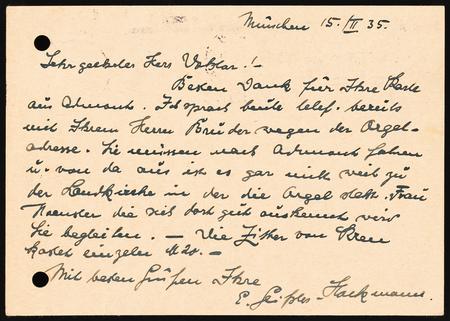 München 15. II 35.
Sehr geehrter Herr Voklar!-
Besten Dank für Ihre Karte
aus Admont. Ich sprach heute telef. bereits
mit Ihrem Herrn Bruder wegen der Orgel-
adresse. Sie müssen nach Admont fahren
u. von da aus ist es gar nicht weit zu
der Landkirche in der die Orgel steht. Frau
die sich dort gut auskennt wird
Sie begleiten. — Die Zither von
kostet einzeln M 20.-
Mit besten Grüßen Ihre
E. Hackmann.